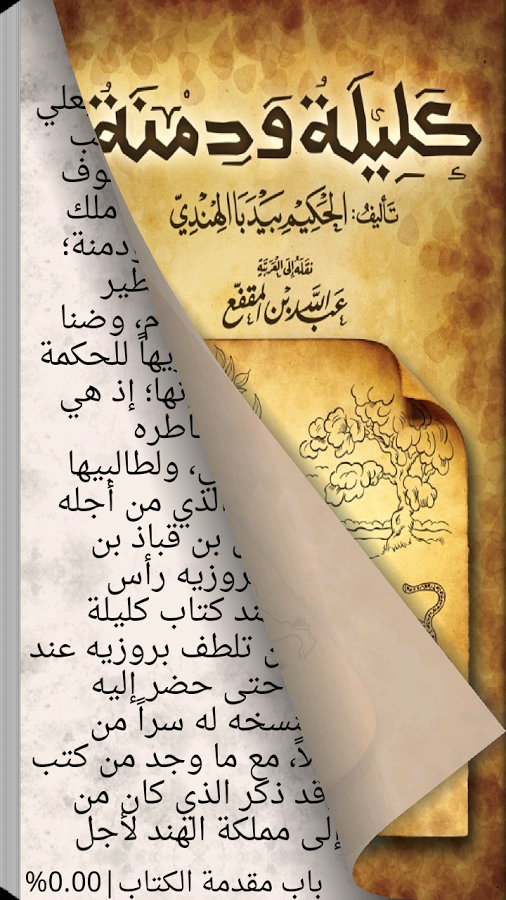 كَلِيلَةُ وَدِمْنَةُ
تَأْلِيفُ: الحَكِيْمِ بَيْدَبَا الهِنْدِيّ
نَقَلَهُ إِلَى العَرَبِيَّةِ
عَبْدُ اللَّه بْنُ المُقَفَّع
ملك
دمنة؛
طير
م، وضنا
للحكمة
إذ هي
ولطالبيها
لذي من أجله
بن قباذ بن
بروزيه رأس
ند كتاب كليلة
ن تلطف بروزيه عند
حتى حضر إليه
نسخه له سراً من
لاً، مع ما وجد من كتب
قد ذكر الذي كان من
إلى مملكة الهند لأجل
باب مقدمة الكتاب|0.00%